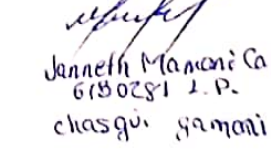 Janneth Mamani Ca
6130281 L.P.
chasqui gamani